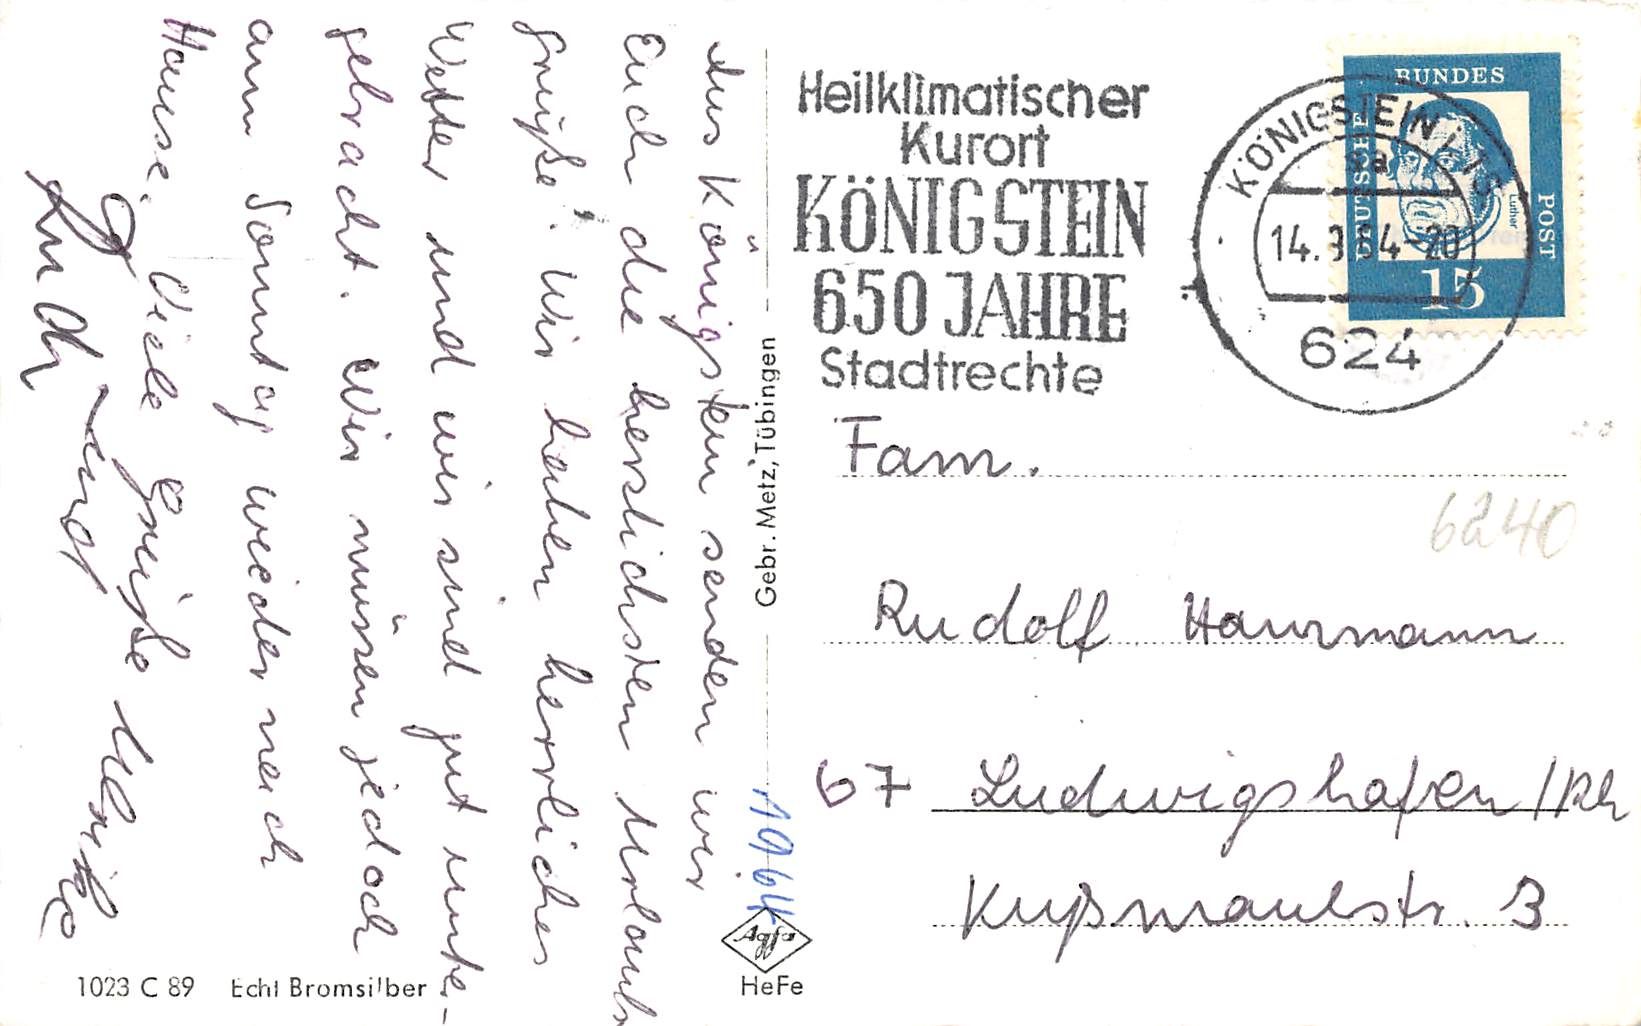 Aus Königstein senden wir
Euch die herzlichsten Urlaubs
grüße. Wir haben herrliches
Wetter und wir sind gut unter-
gebracht. Wir müssen jedoch
am Sonntag wieder nach
Hause. Viele Grüße Ulrike
und
Gebr. Metz, Tübingen
1964
Agfa
HeFe
1023 C 89 Echt Bromsilber
Heilklimatischer
Kurort
KÖNIGSTEIN
650 JAHRE
Stadtrechte
KÖNIGSTEIN
sa
624
DEUTSCHE
BUNDES
POST
Luther
15
Fam.
6240
Rudolf
67 Ludwigshafen/Rh
Kußmaulstr. 3